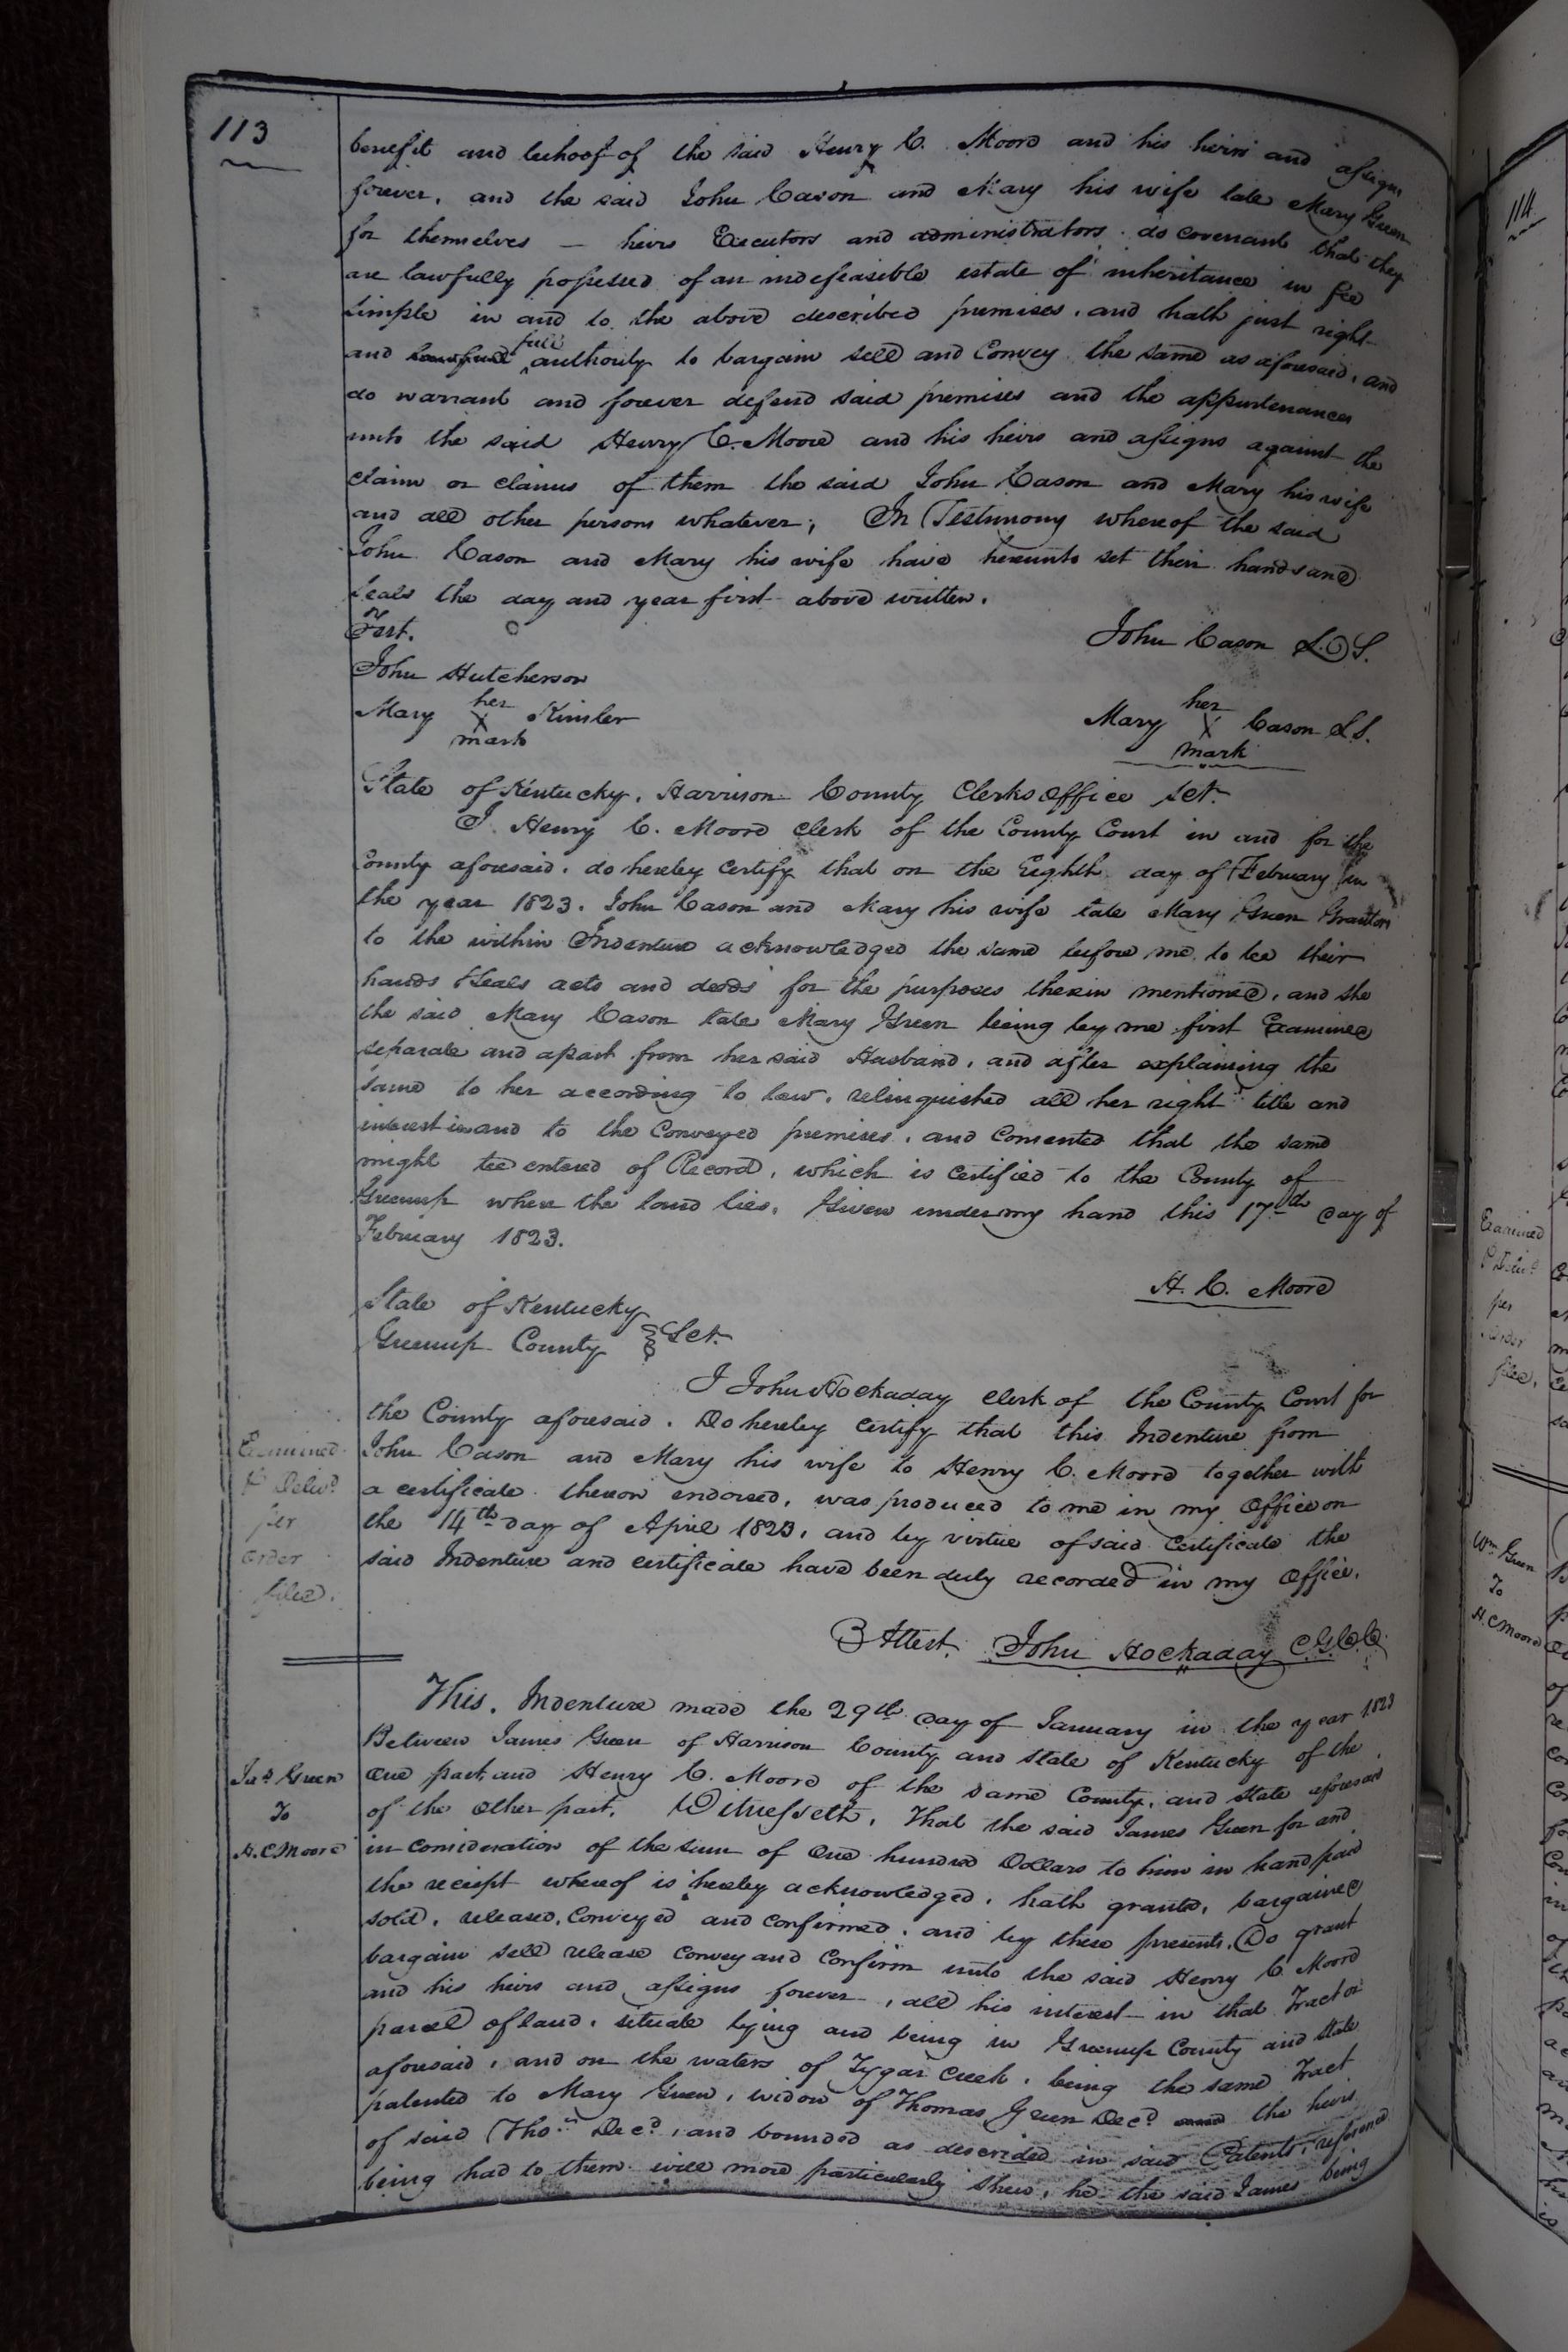 113
benefit and behoof of the said Henry C. Moore and his heirs and assigns
forever, and the said John Cason and Mary his wife late Mary Green
for themselves — heirs Executors and administrators do covenant that they
are lawfully possessed of an indefeasible estate of inheritance in fee
simple in and to the above described premises, and hath just right
and full authority to bargain sell and Convey the same as aforesaid, and
do warrant and forever defend said premises and the appurtenances
unto the said Henry C. Moore and his heirs and assigns against the
claim or claims of them the said John Cason and Mary his wife
and all other persons whatever, In Testimony whereof the said
John Cason and Mary his wife have hereunto set their hands and
seals the day and year first above written.
Test.
John Cason L.S.
John Hutcherson
Mary her X mark Kinsler
Mary her X mark Cason L.S.
State of Kentucky, Harrison County Clerks office Sct.
I Henry C. Moore Clerk of the County Court in and for the
County aforesaid, do hereby Certify that on the Eighth day of February in
the year 1823. John Cason and Mary his wife late Mary Green Grantors
to the within Indenture acknowledged the same before me to be their
hands & seals acts and deeds for the purposes therein mentioned, and she
the said Mary Cason late Mary Green being by me first Examined
separate and apart from her said Husband, and after explaining the
same to her according to law, relinquished all her right title and
interest in and to the Conveyed premises, and Consented that the same
might be entered of Record, which is certified to the County of
Greenup where the land lies. Given under my hand this 17th day of
February 1823.
H. C. Moore
State of Kentucky
Greenup County Sct.
I John Hockaday Clerk of the County Court for
the County aforesaid. Do hereby Certify that this Indenture from
John Cason and Mary his wife to Henry C. Moore together with
a certificate thereon endorsed, was produced to me in my Office on
the 14th day of April 1823, and by virtue of said Certificate the
said Indenture and certificate have been duly recorded in my Office.
Examined
& Delivd
per
order
filed.
Attest. John Hockaday C.G.C.C.
This Indenture made the 29th day of January in the year 1823
Between James Green of Harrison County and State of Kentucky of the
Jas Green
To
H. C. Moore
one part, and Henry C. Moore of the same County, and State aforesaid
of the other part, Witnesseth, That the said James Green for and
in consideration of the sum of One hundred Dollars to him in hand paid
the receipt whereof is hereby acknowledged, hath granted, bargained
sold, released, Conveyed and Confirmed, and by these presents, Do grant
bargain sell release Convey and Confirm unto the said Henry C. Moore
and his heirs and assigns forever, all his interest in that Tract or
parcel of land, situate lying and being in Greenup County and State
aforesaid, and on the waters of Tygar Creek, being the same Tract
patented to Mary Green, widow of Thomas Green Decd the heirs
of said Thos Decd, and bounded as described in said Patents, reference
being had to them will more particularly shew, he the said James being
114
Examined
& Delivd
per
Order
filed.
Wm Green
To
H. C Moore